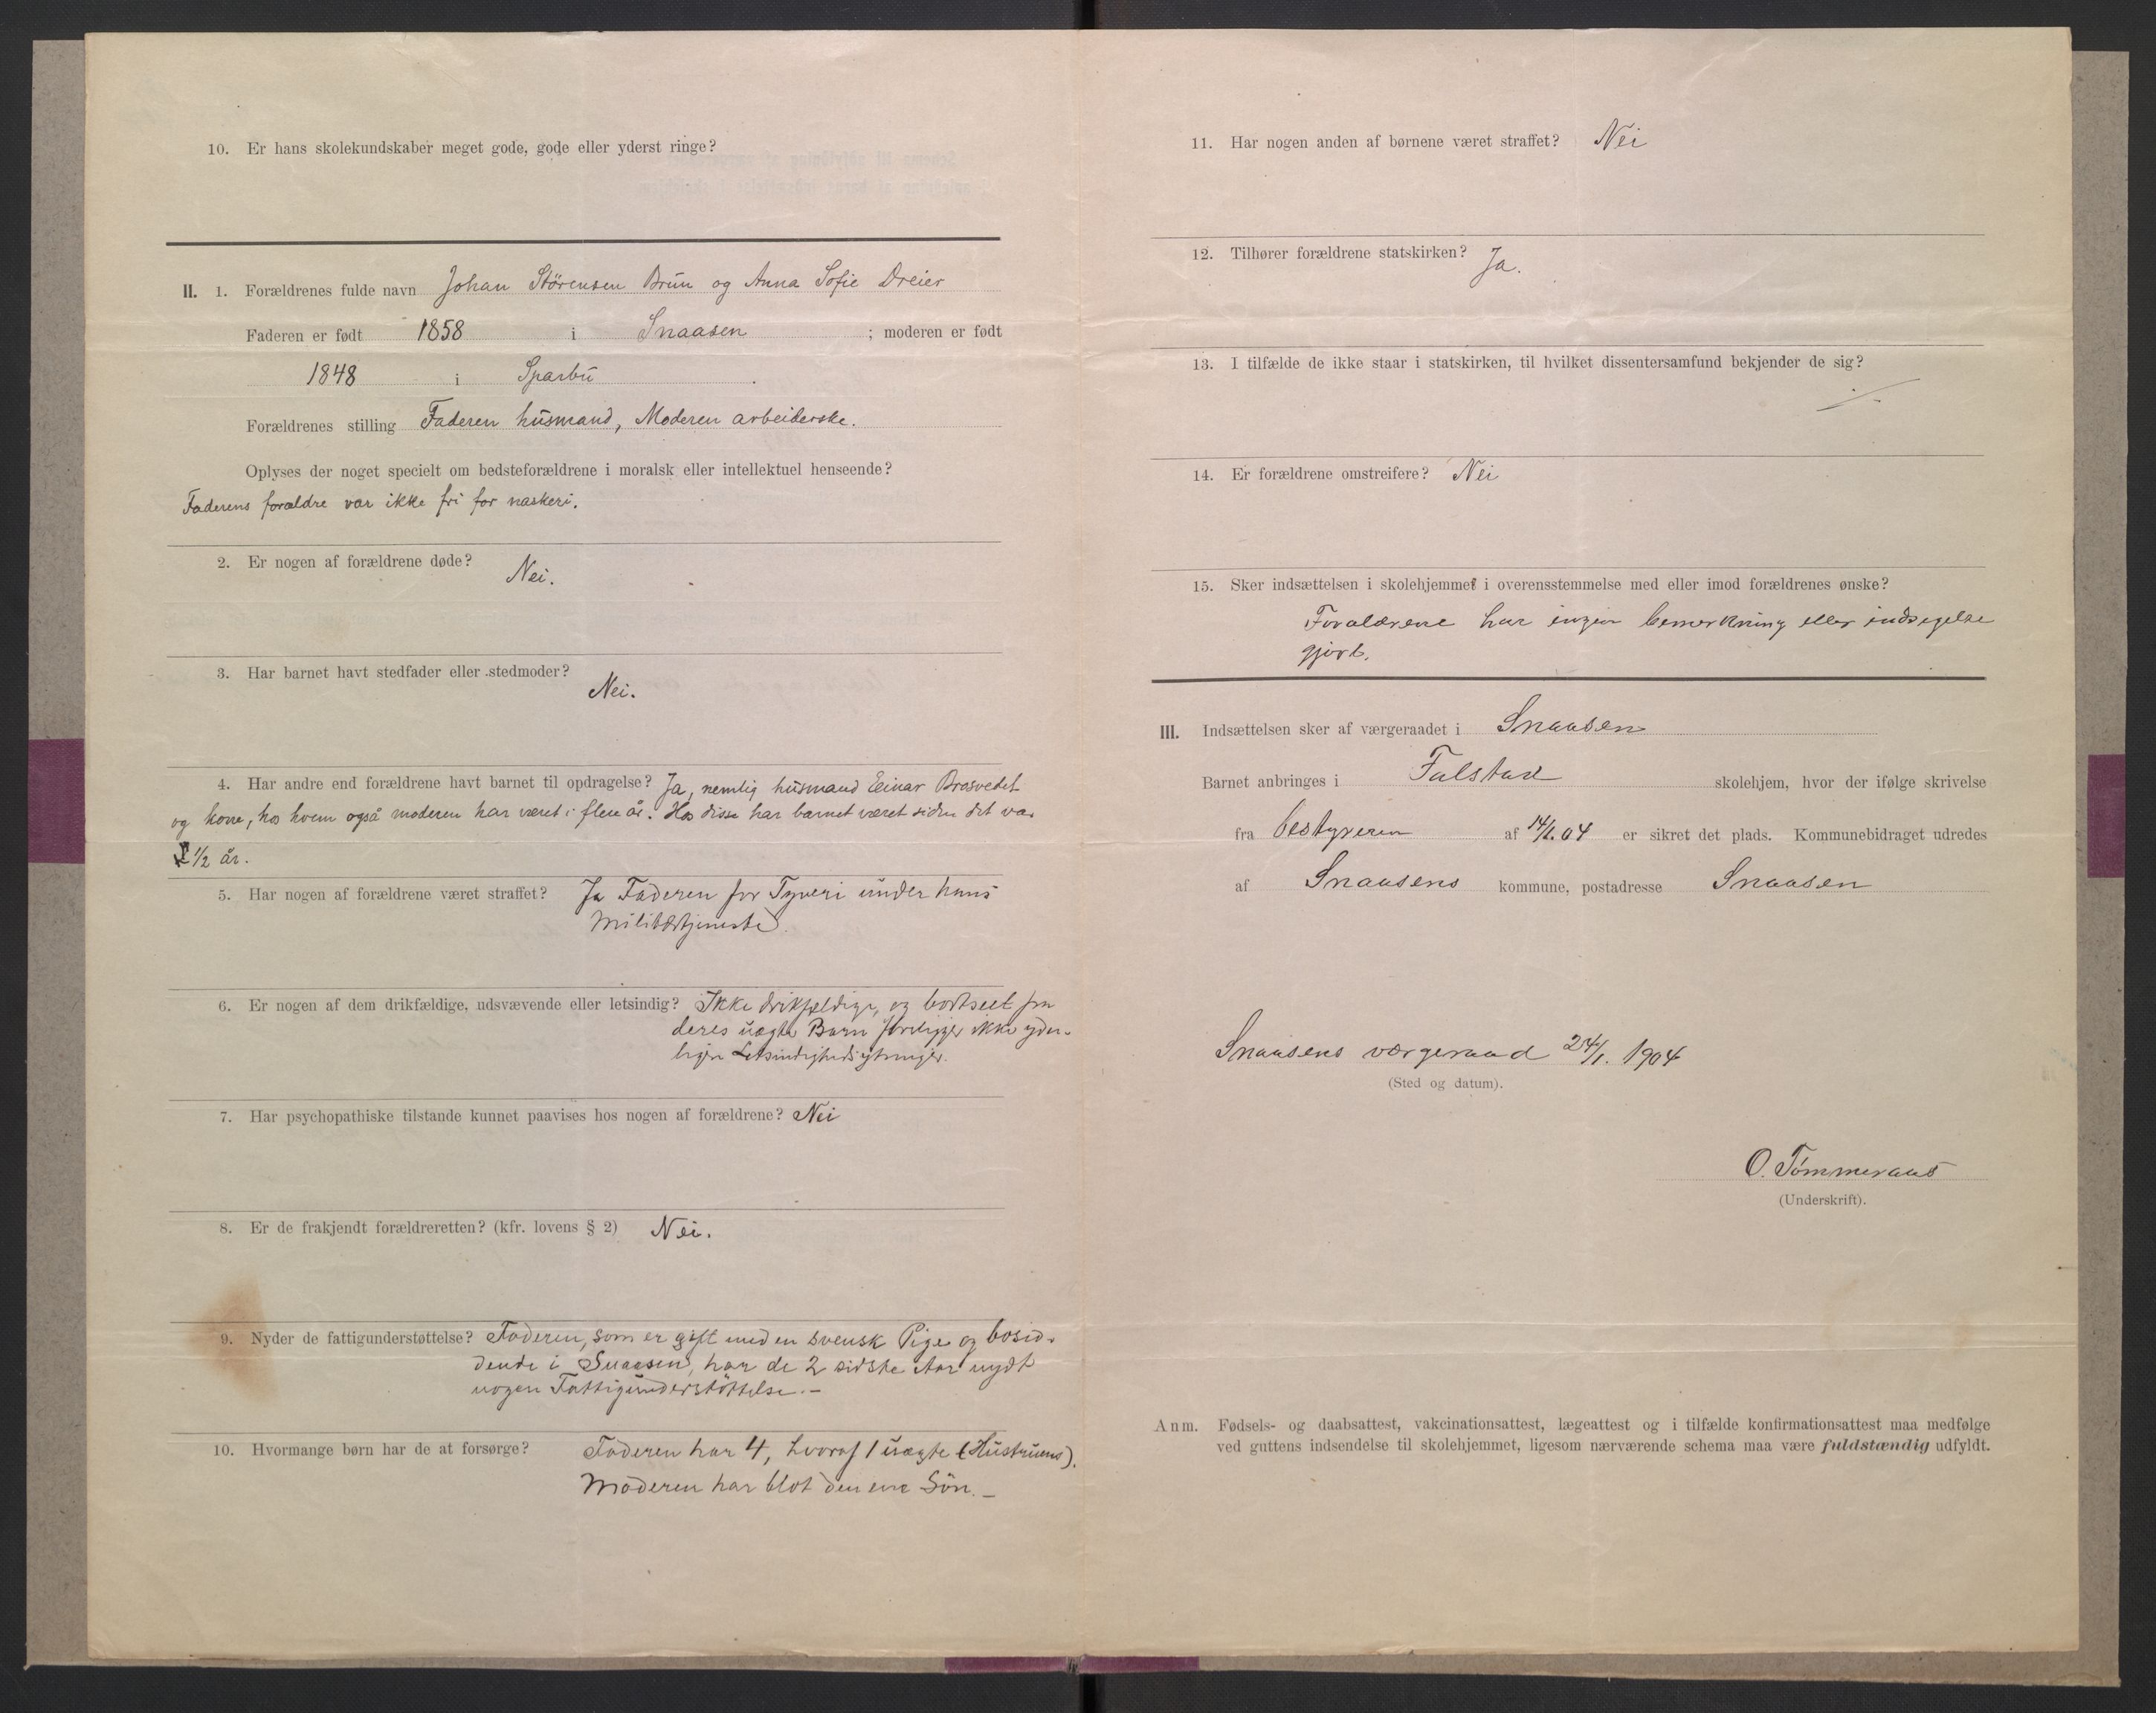 10. Er hans skolekundskaber meget gode, gode eller yderst ringe?
II. 1. Forældrenes fulde navn Johan Störensen Brun og Anna Sofie Dreier
Faderen er født 1858 i Snaasen ; moderen er født
1848 i Sparbu .
Forældrenes stilling Faderen husmand, Moderen arbeiderske.
Oplyses der noget specielt om bedsteforældrene i moralsk eller intellektuel henseende?
Faderens forældre var ikke fri for naskeri.
2. Er nogen af forældrene døde? Nei.
3. Har barnet havt stedfader eller stedmoder?
Nei.
4. Har andre end forældrene havt barnet til opdragelse? Ja, nemlig husmand Einar Brosvedet
og kone, hos hvem også moderen har været i flere år. Hos disse har barnet været siden det var
1/2 år.
5. Har nogen af forældrene været straffet? Ja Faderen for Tyveri under hans
Militærtjeneste.
6. Er nogen af dem drikfældige, udsvævende eller letsindig? Ikke drikfældige, og bortseet fra
deres uægte Barn foreligger ikke yder-
ligere Letsindighedsytringer.
7. Har psychopathiske tilstande kunnet paavises hos nogen af forældrene? Nei
8. Er de frakjendt forældreretten? (kfr. lovens § 2) Nei.
9. Nyder de fattigunderstøttelse? Faderen, som er gift med en svensk Pige og bosid-
dende i Snaasen, har de 2 sidste Aar nydt
nogen Fattigunderstöttelse.-
10. Hvormange børn har de at forsørge? Faderen har 4, hvoraf 1 uægte (Hustruens).
Moderen har blot den ene Sön.-
11. Har nogen anden af børnene været straffet? Nei
12. Tilhører forældrene statskirken? Ja.
13. I tilfælde de ikke staar i statskirken, til hvilket dissentersamfund bekjender de sig?
14. Er forældrene omstreifere? Nei
15. Sker indsættelsen i skolehjemmet i overensstemmelse med eller imod forældrenes ønske?
Forældrene har ingen bemerkning eller indsigelse
gjort.
III. Indsættelsen sker af værgeraadet i Snaasen
Barnet anbringes i Falstad skolehjem, hvor der ifølge skrivelse
fra bestyreren af 14/1.04 er sikret det plads. Kommunebidraget udredes
af Snaasens kommune, postadresse Snaasen
Snaasens værgeraad 24/1. 1904
(Sted og datum).
O. Tömmeraas
(Underskrift).
Anm. Fødsels- og daabsattest, vakcinationsattest, lægeattest og i tilfælde konfirmationsattest maa medfølge
ved guttens indsendelse til skolehjemmet, ligesom nærværende schema maa være fuldstændig udfyldt.